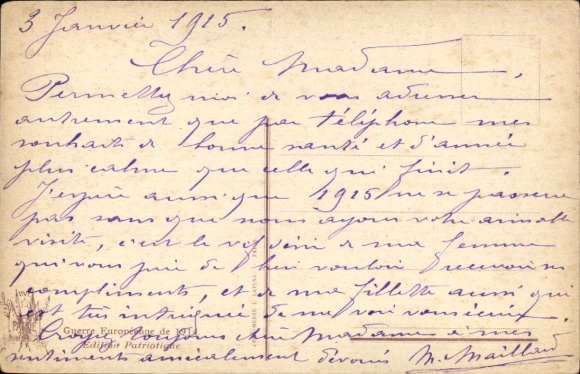 3 Janvier 1915.
Chère Madame,
Permettez moi de vous adresser
autrement que par téléphone mes
souhaits de bonne santé et d'année
plus calme que celle qui finit.
J'espère aussi que 1915 ne se passera
pas sans que nous ayons votre aimable
visite, c'est le vif désir de ma femme
qui vous prie de bien vouloir recevoir ses
compliments, et de ma fillette aussi qui
est très intriguée de me voir vous écrire.
Croyez toujours chère Madame à mes
sentiments amicalement dévoués M. Maillard
Guerre Européenne de 1914
Edition Patriotique